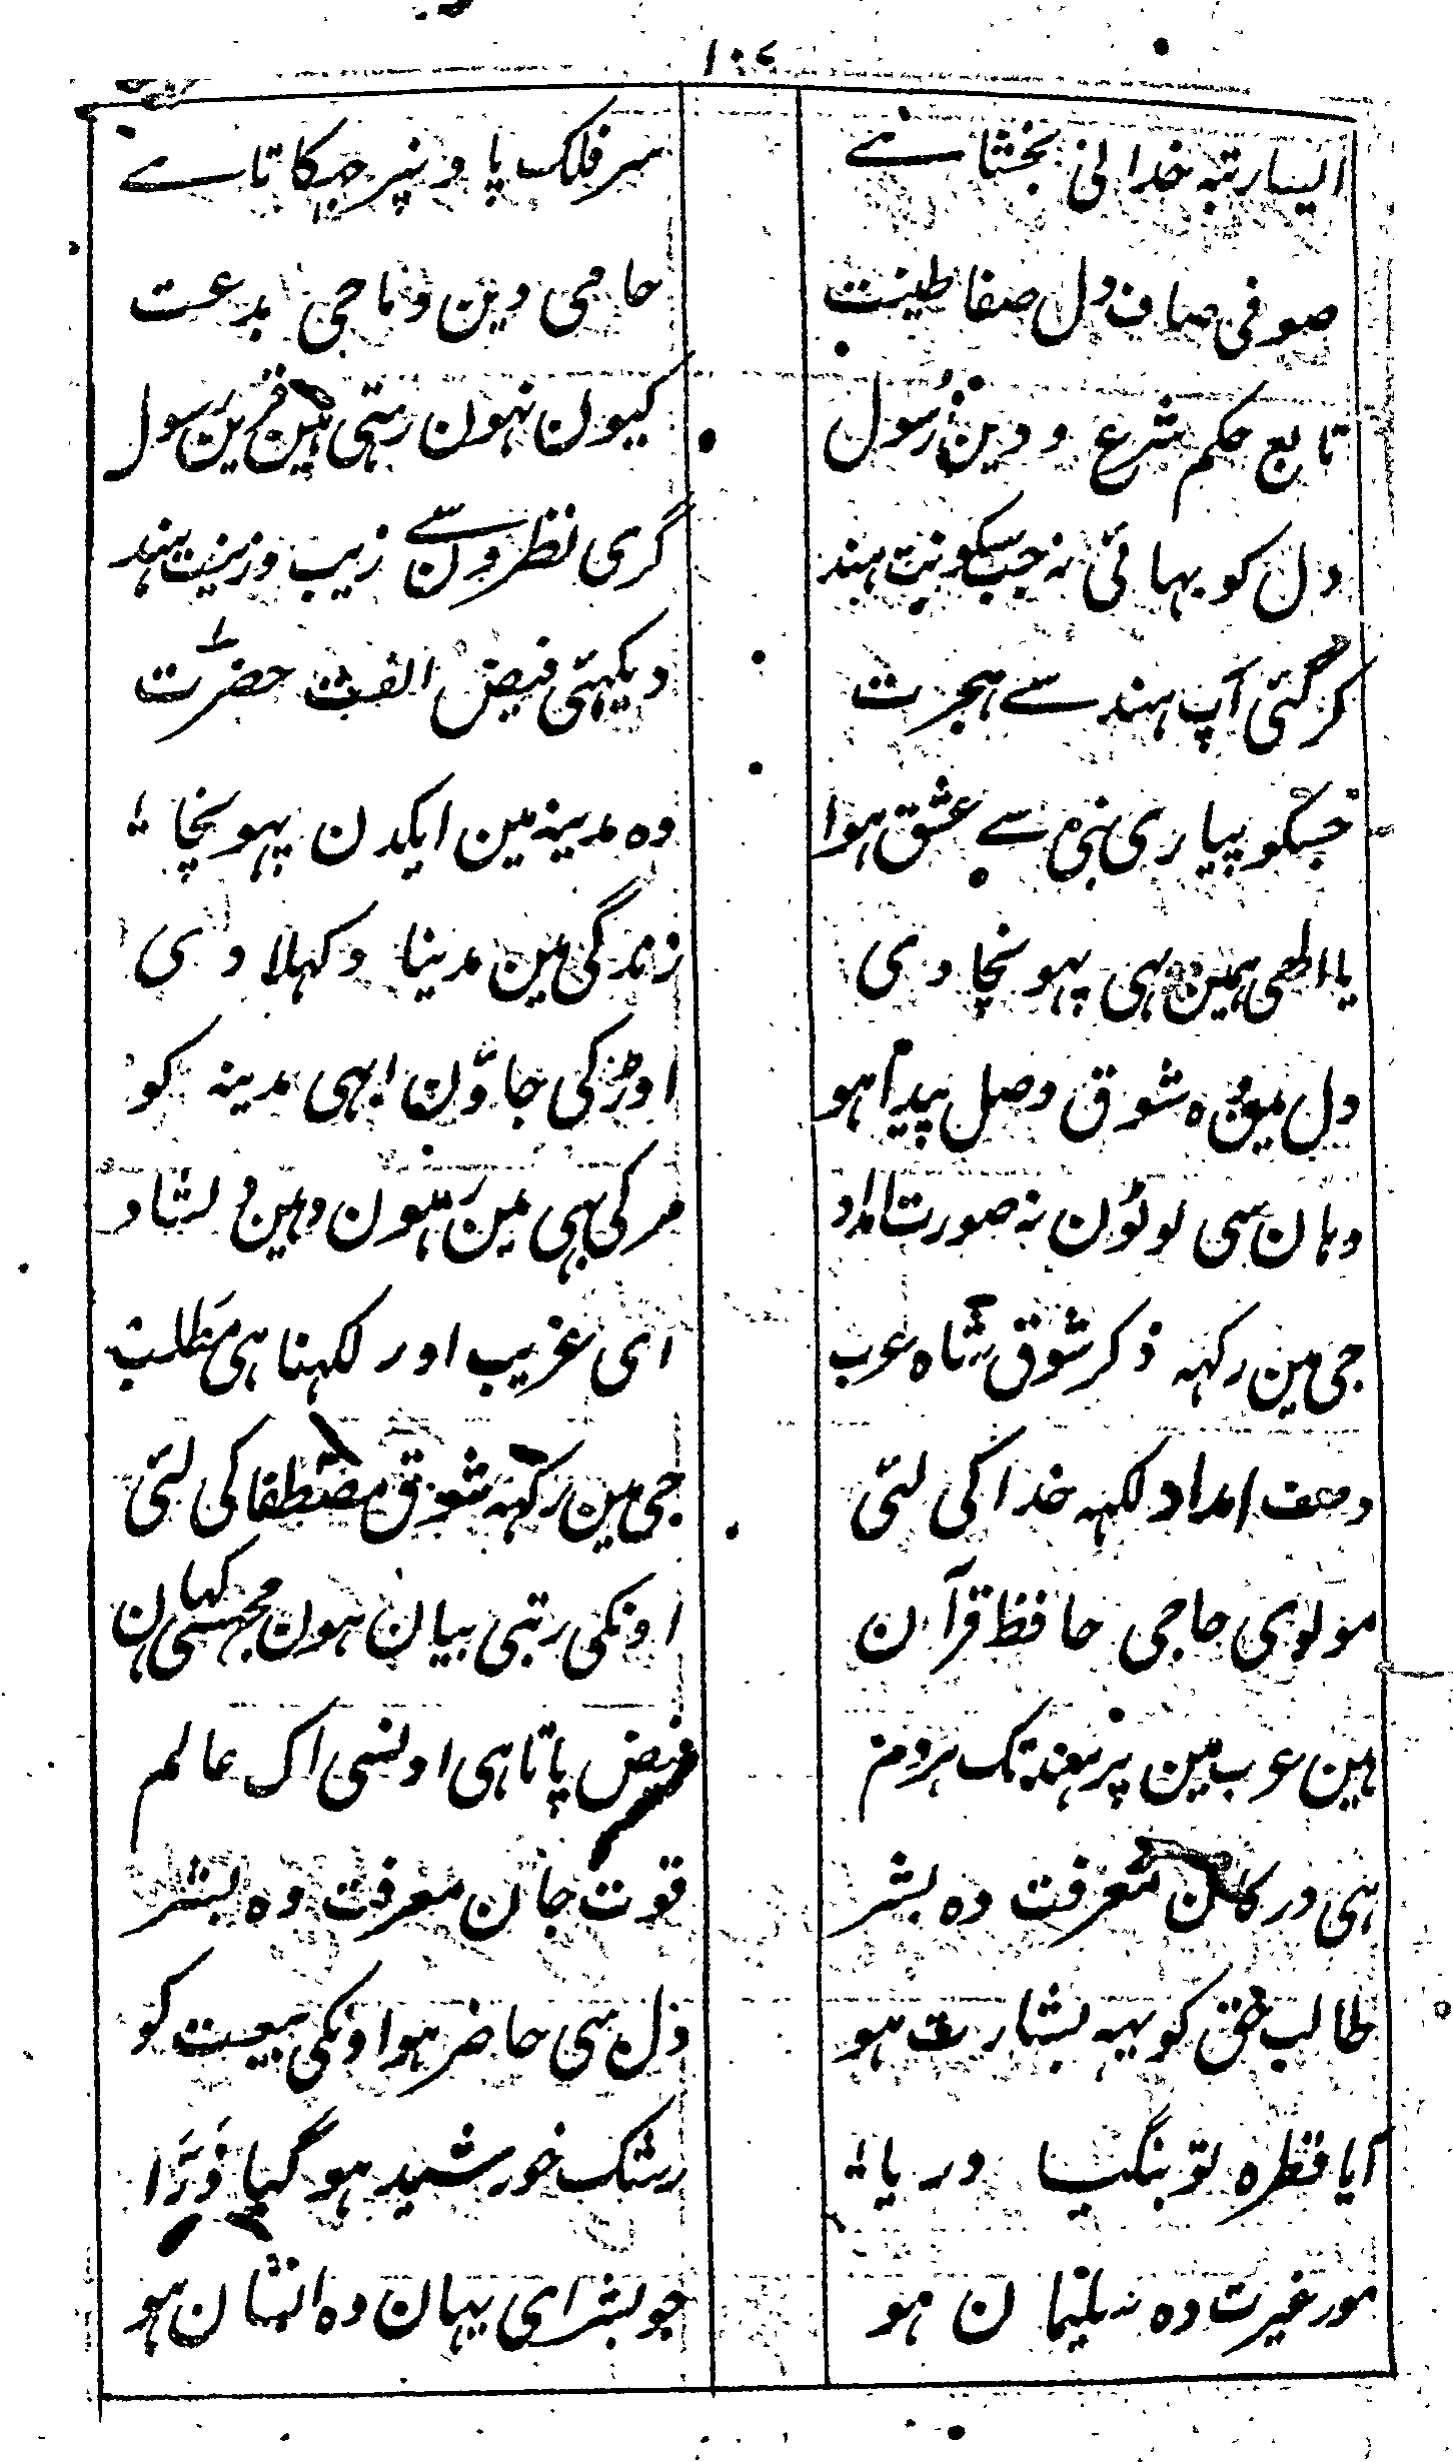 ۱۰۷
ایسا رتبہ خدا نی بخشا ہے
سر فلک پاونپر جہکاتا ہے
صوفی صاف دل صفا طینت
حامی دین و ماحی بدعت
تابع حکم شرع و دین رسول
کیون نہون رہتی ہین قرین رسول
دل کو بہائی نہ جب سکونت ہند
گری نظرون سے زیب و زینت ہند
کر گئی آپ ہند سے ہجرت
دیکہئی فیض الفت حضرت
جسکو پیاری نبی سے عشق ہوا
وہ مدینہ مین ایکدن پہونچا
یا الٰہی ہمین بہی پہونچا دی
زندگی مین مدینا دکہلا دی
دل مین وہ شوق وصل پیدا ہو
اوڑ کی جاؤن ابہی مدینہ کو
وہان سی لوٹون نہ صورت امداد
مر کی بہی مین رہون وہین دلشاد
جی مین رکہہ ذکر شوق شاہ عرب
ای غریب اور لکہنا ہی مطلب
وصف امداد لکہہ خدا کی لئی
جی مین رکہہ شوق مصطفا کی لئی
مولوی حاجی حافظ قرآن
اونکی رتبی بیان ہون مجہسی کہان
ہین عرب مین پر ہند تک ہردم
فیض پاتا ہی اونسی اک عالم
ہی در کان معرفت وہ بشر
قوت جان معرفت وہ بشر
طالب حق کو یہہ بشارت ہو
دل سی حاضر ہو اونکی بیعت کو
آیا قطرہ تو بنگیا دریا
رشک خورشید ہو گیا ذرّا
مور غیرت دہ سلیمان ہو
جو بشر ای یہان وہ انسان ہو